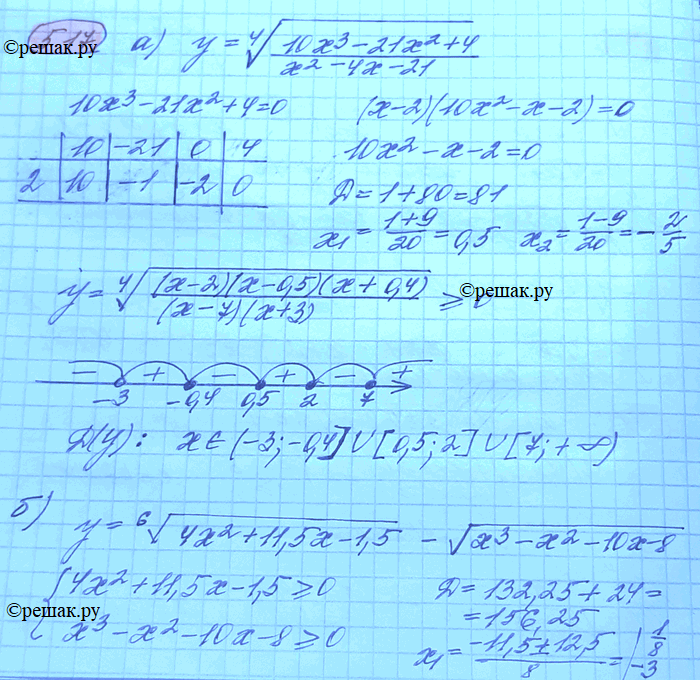 517 а) y = ⁴√((10x³ − 21x² + 4)/(x² − 4x − 21))
©решак.ру
10x³ − 21x² + 4 = 0 (x−2)(10x² − x − 2) = 0
| 10 | −21 | 0 | 4
2 | 10 | −1 | −2 | 0
10x² − x − 2 = 0
Д = 1 + 80 = 81
x₁ = (1+9)/20 = 0,5 x₂ = (1−9)/20 = −2/5
y = ⁴√(((x−2)(x−0,5)(x+0,4))/((x−7)(x+3))) ≥ 0
©решак.ру
− + − + − +
−3 −0,4 0,5 2 7
Д(y): x ∈ (−3; −0,4] ∪ [0,5; 2] ∪ [7; +∞)
б) y = ⁶√(4x² + 11,5x − 1,5) − √(x³ − x² − 10x − 8)
{ 4x² + 11,5x − 1,5 ≥ 0
x³ − x² − 10x − 8 ≥ 0
©решак.ру
Д = 132,25 + 24 =
= 156,25
x₁ = (−11,5 ± 12,5)/8 = 1/8
−3
©решак.ру